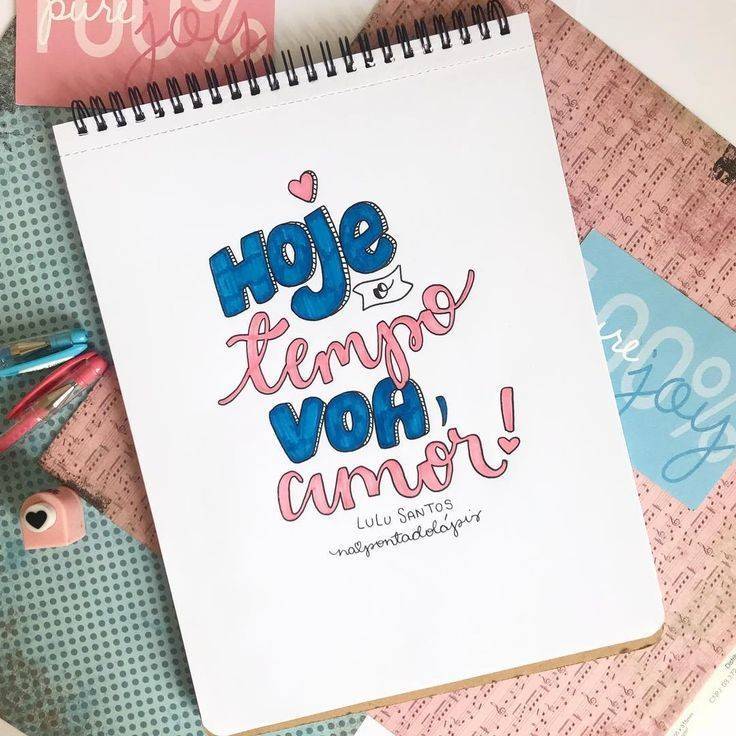 pure
100%
joy
Hoje
o
tempo
voa,
amor!
LULU SANTOS
nalpontadolápis
pure
100%
joy